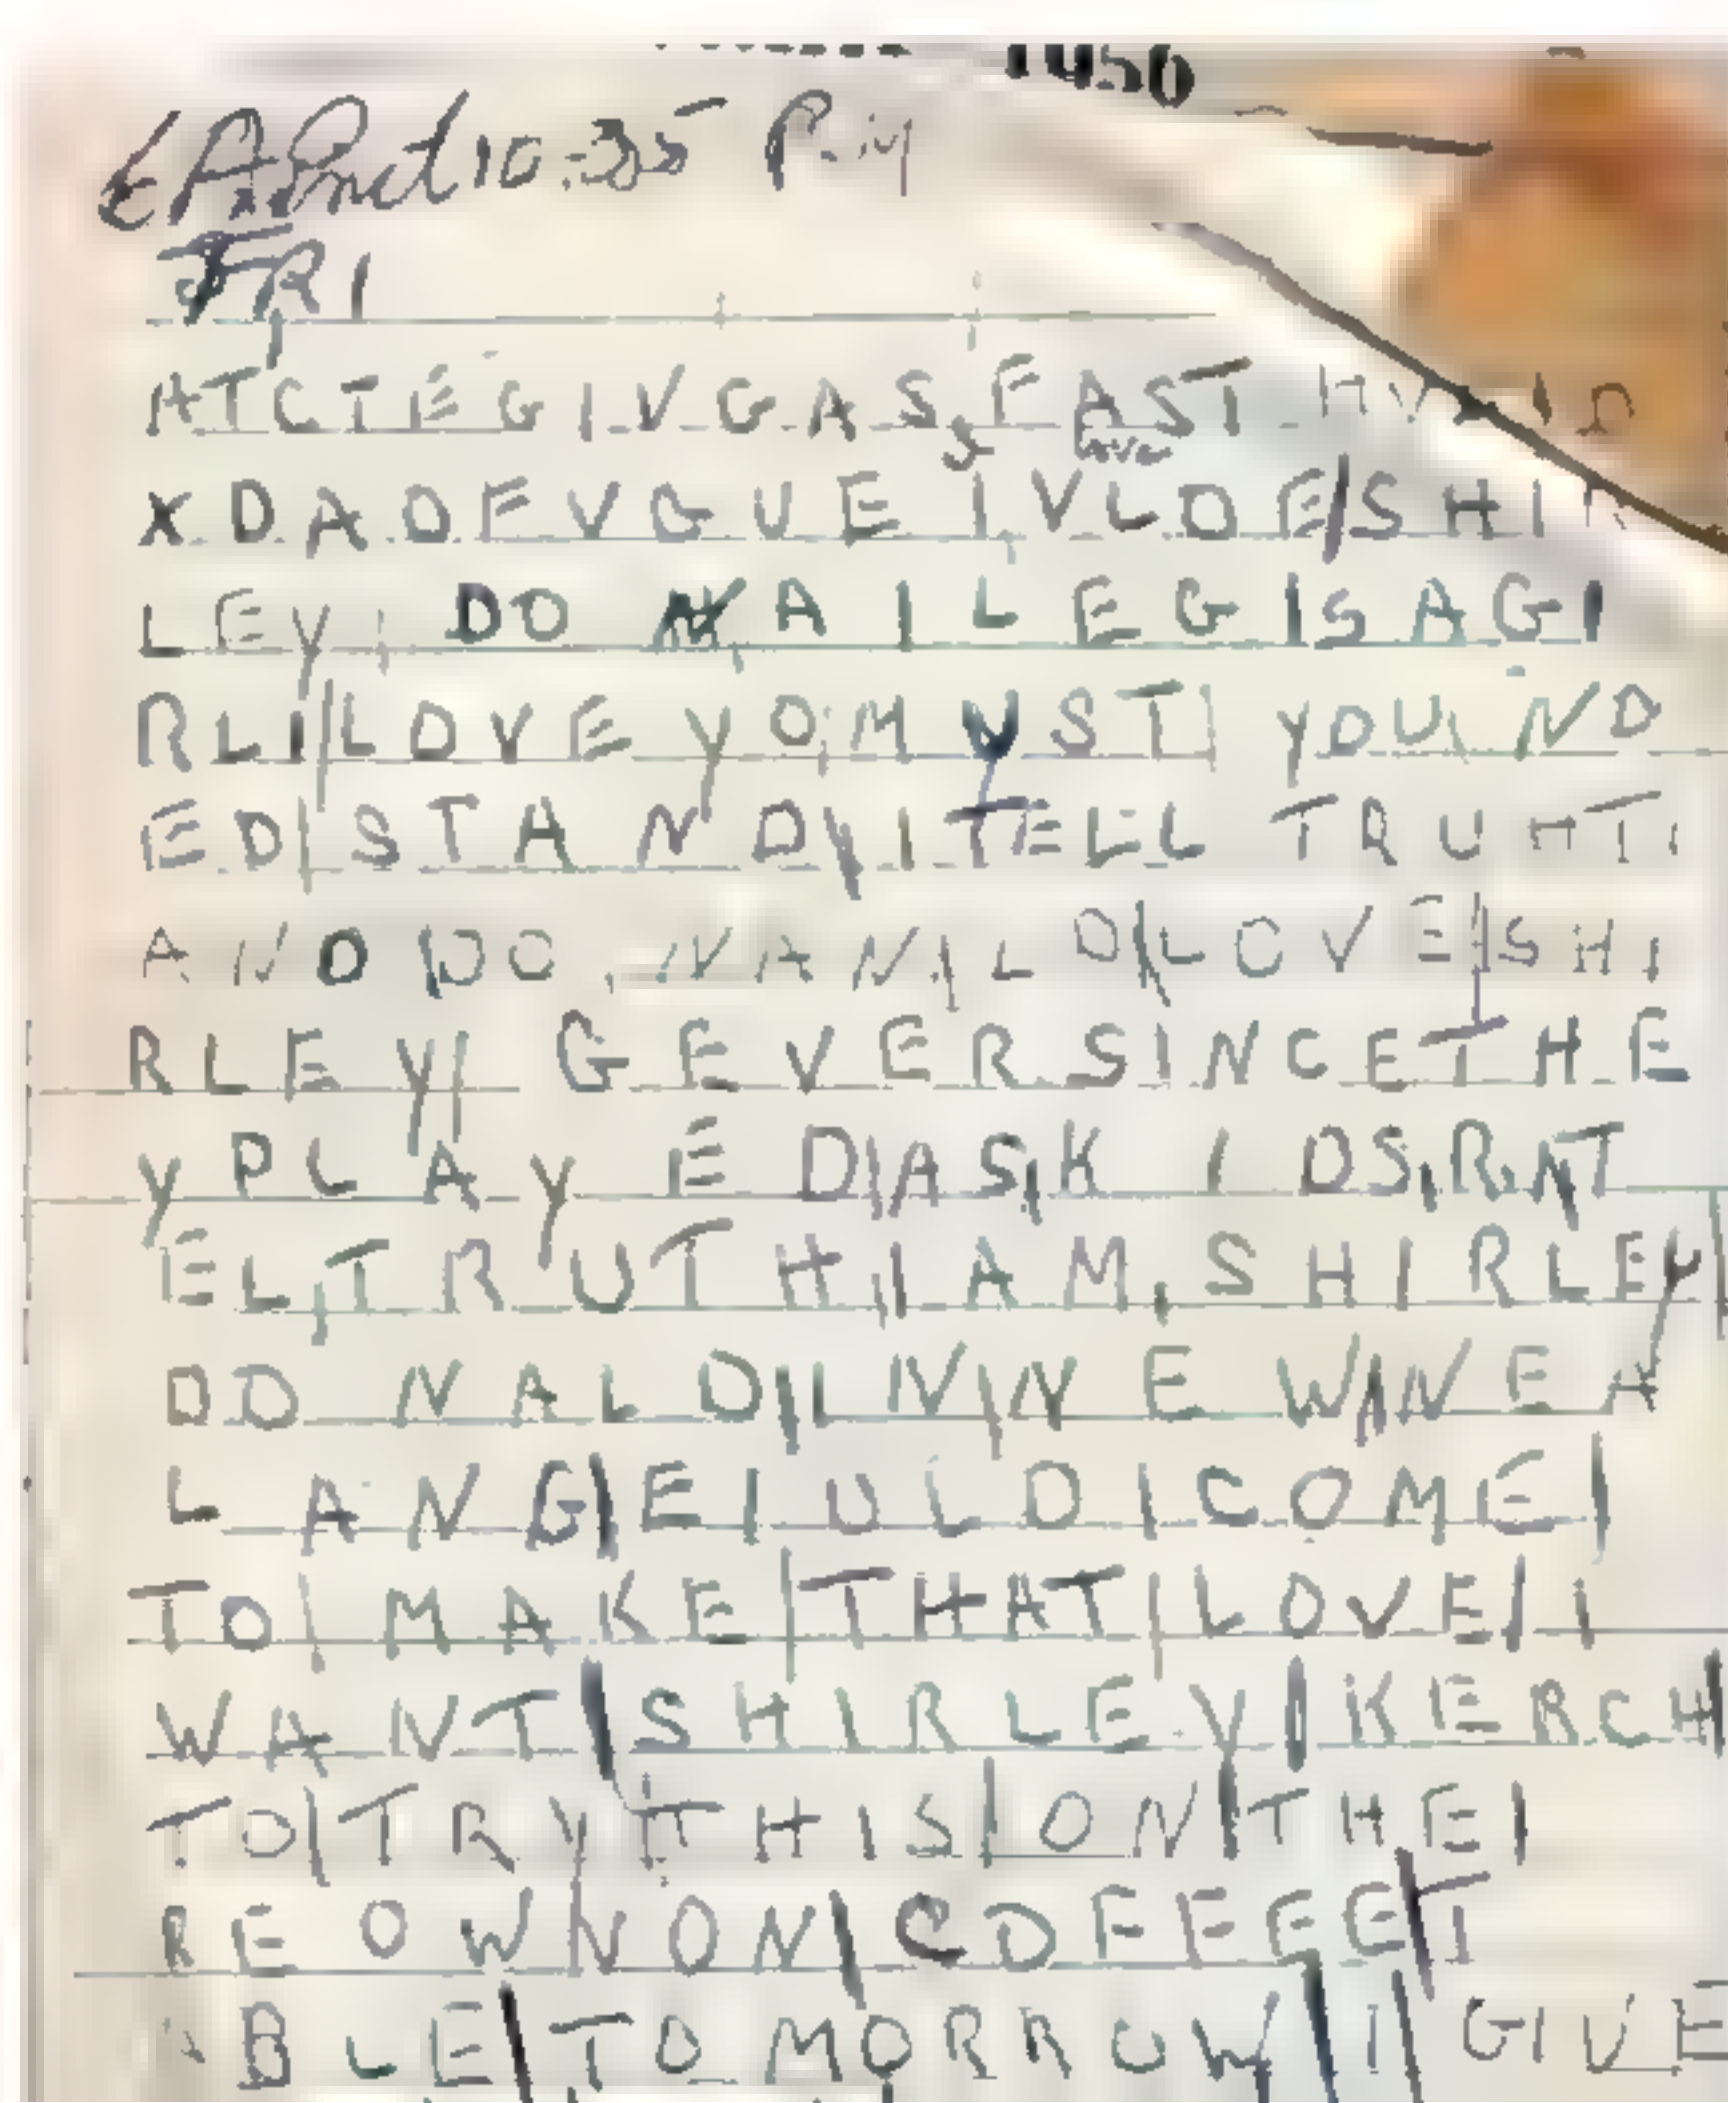 1956
10:35 P.M
FRI
ATCTEGIVGAS FAST
love
XDAOFVGUE IVLOE/SHIR
LEY DO NAILEGISAGI
RLI|LOVE YOMUST| YOU NO
ED|STAND\ITELL TRUHT
ANO DO NAN|LD|LOVE|SHI
RLEY| GEVERSINCETHE
YPLAYED|ASK I OSRNT
ELTRUTH|IAM SHIRLEY|
DO NALD|LNINE WINEA
LANG|E|ULD|COME|
TO|MAKE|THAT|LOVE|I
WANT|SHIRLEY|KERCH|
TO|TRY|THIS|ON|THE|
REOWNON|COFEEE|T
ABLE|TOMORROW|I|GIVE